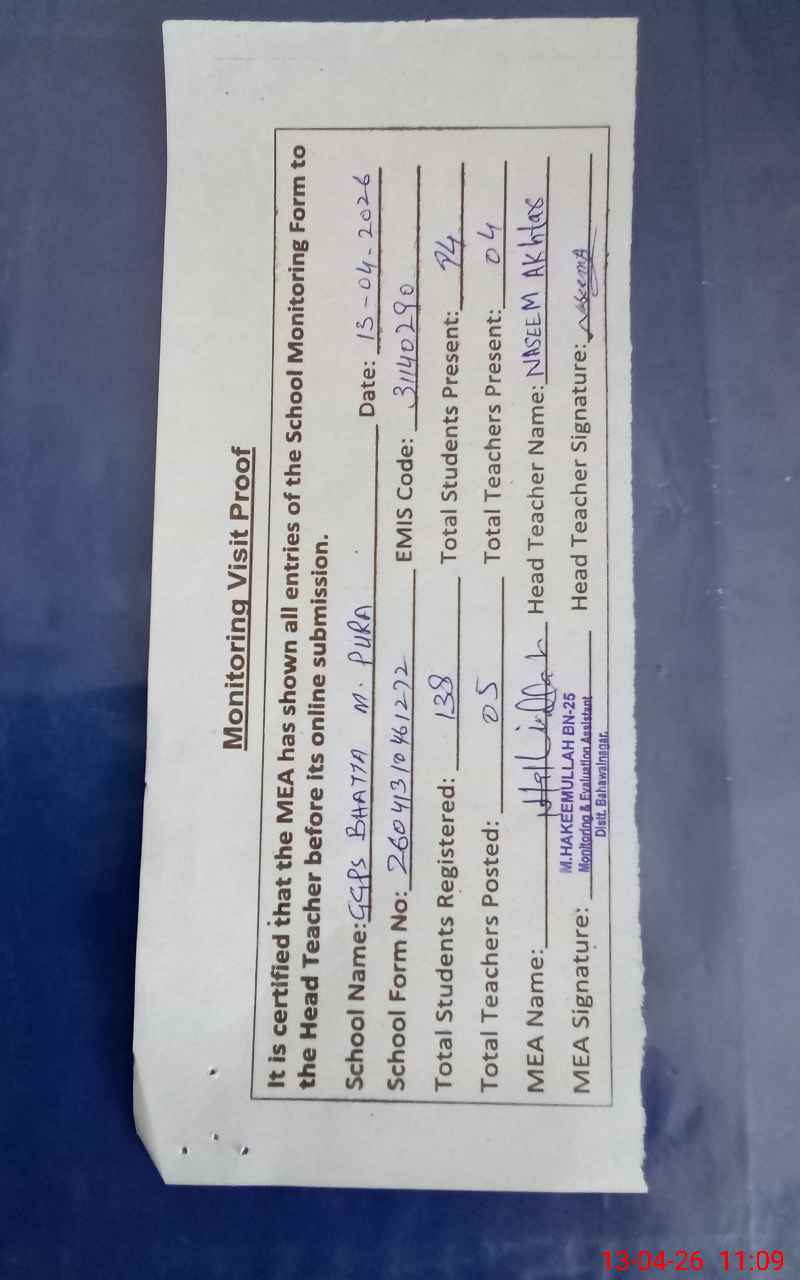 Monitoring Visit Proof
It is certified that the MEA has shown all entries of the School Monitoring Form to
the Head Teacher before its online submission.
School Name: GGPS BHATTA M. PURA Date: 13-04-2026
School Form No: 260413104612 72 EMIS Code: 31140290
Total Students Registered: 138 Total Students Present: 94
Total Teachers Posted: 05 Total Teachers Present: 04
MEA Name: Head Teacher Name: NASEEM AKhtar
M.HAKEEMULLAH BN-25
MEA Signature: Monitoring & Evaluation Assistant Head Teacher Signature: NaseemA
Distt. Bahawalnagar.
13-04-26 11:09